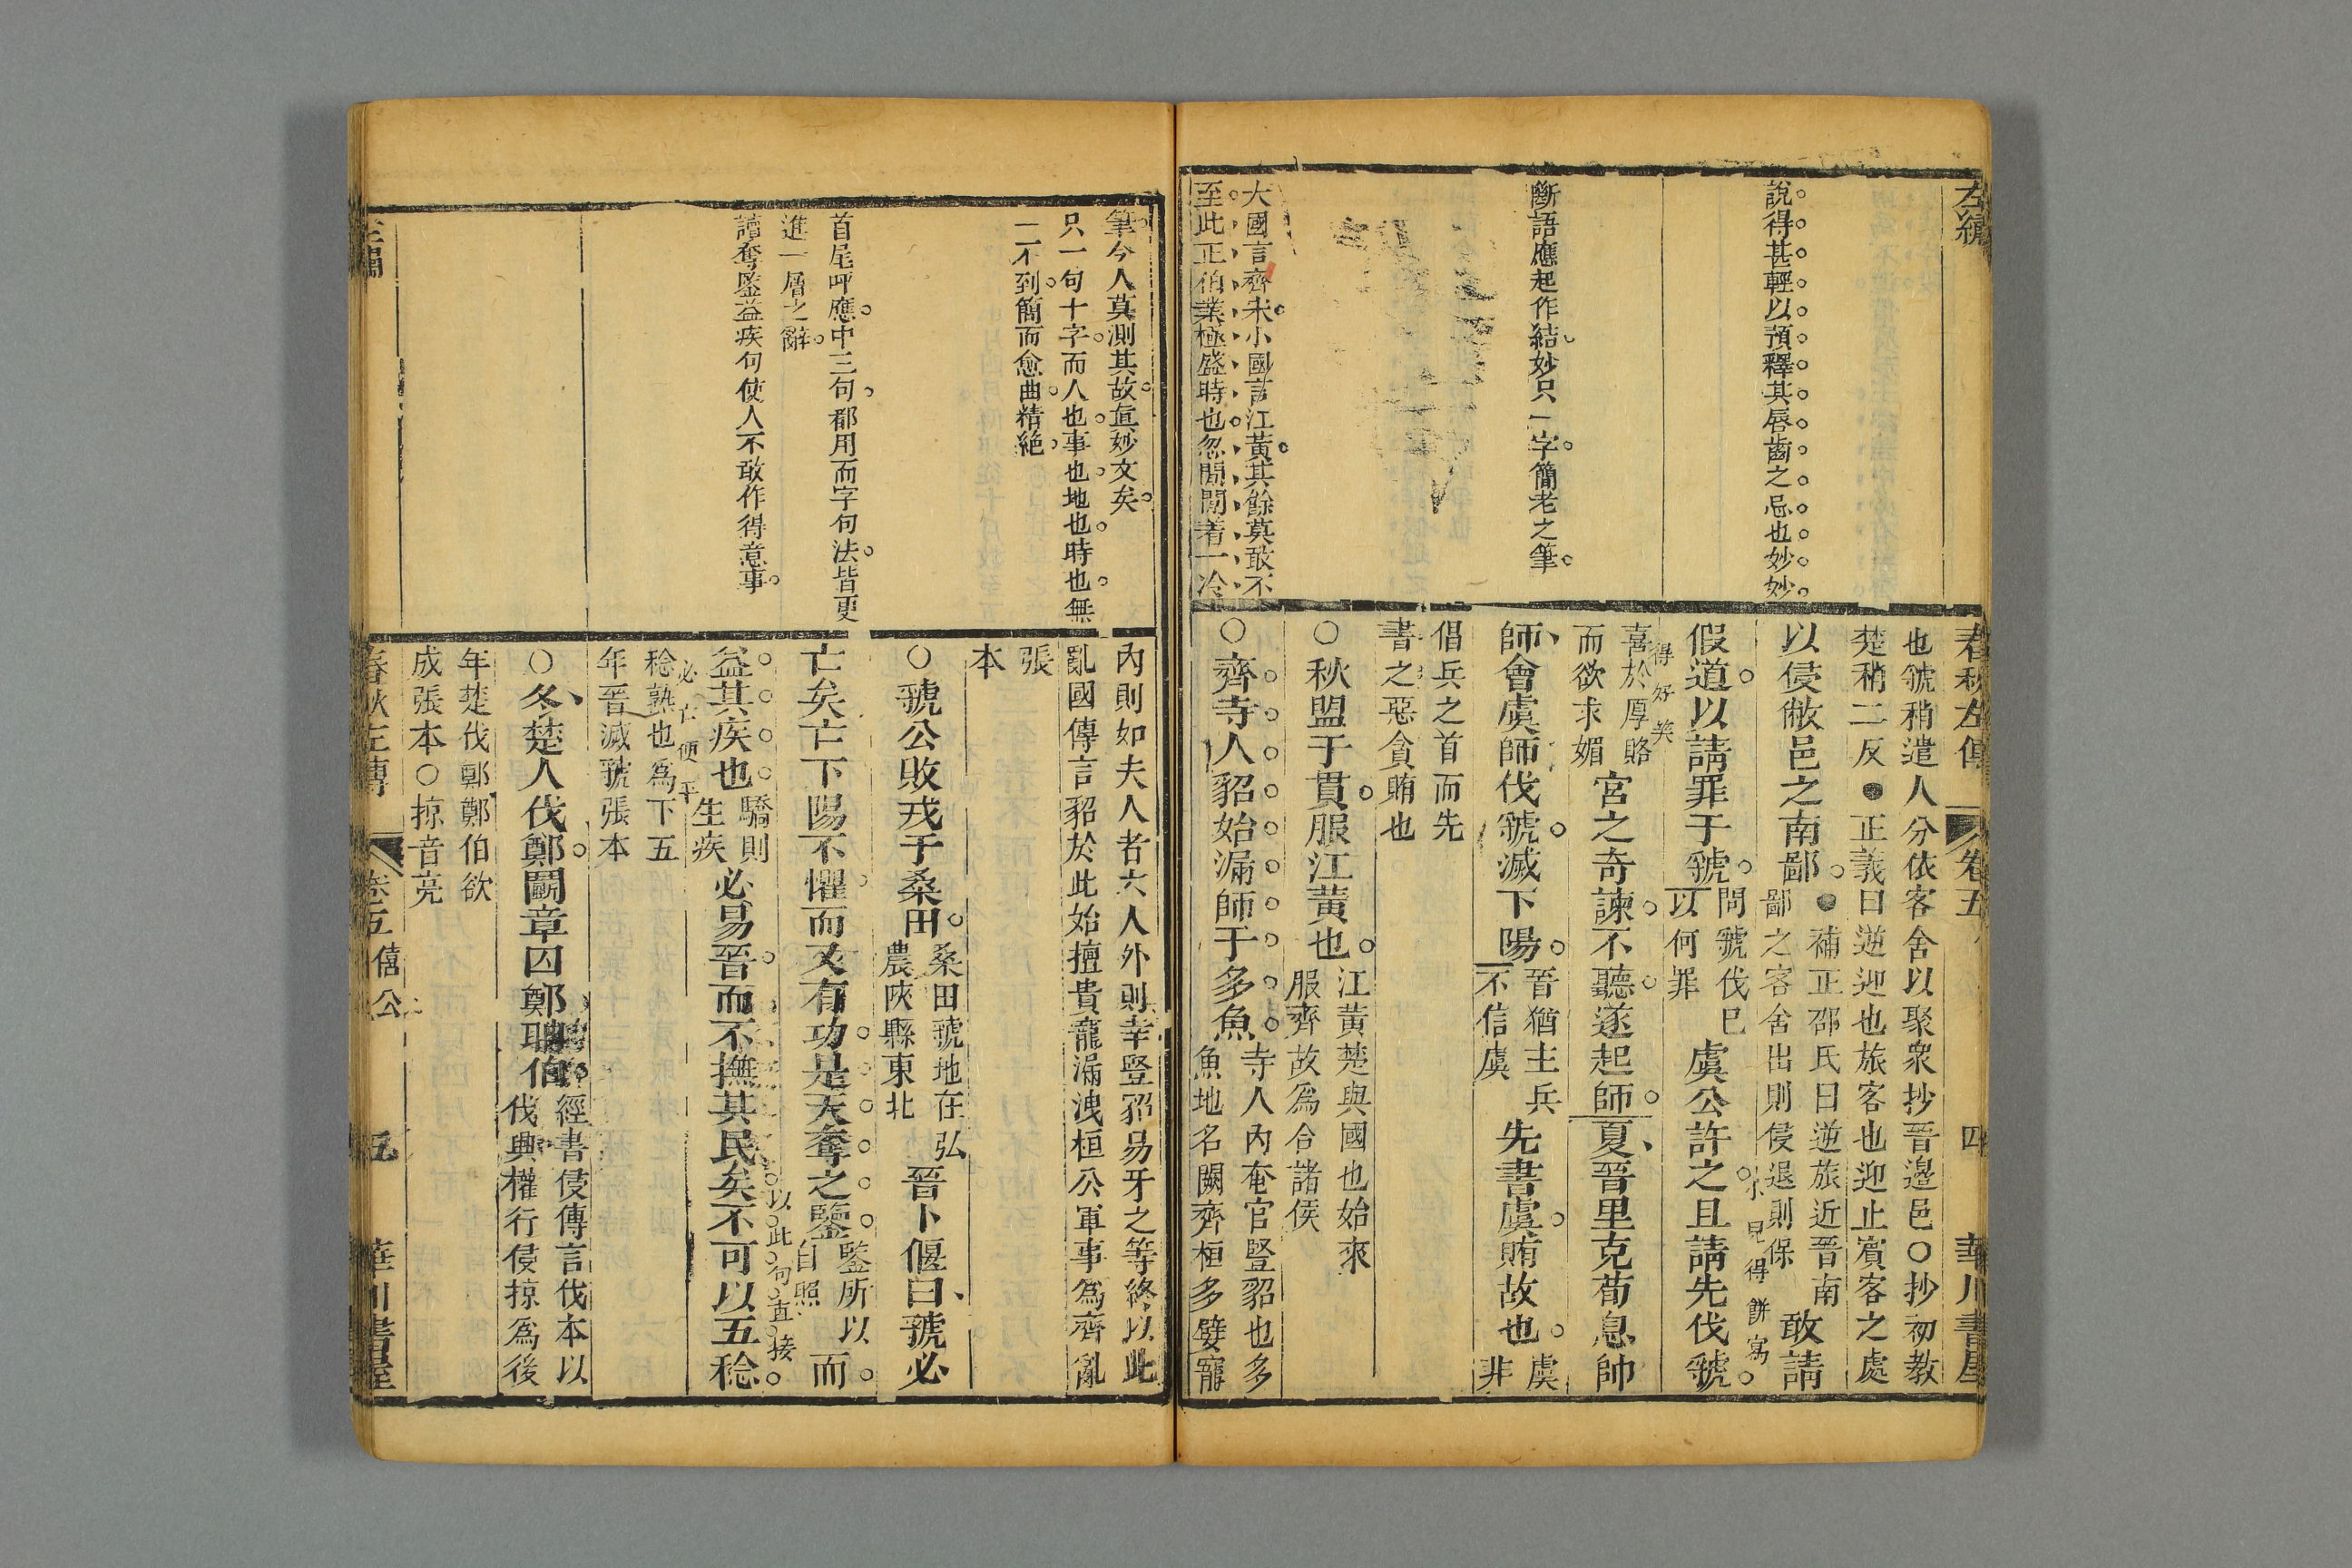 左繡
春秋左傳
卷五
四
華川書屋
說得甚輕以預釋其唇齒之忌也妙妙
斷語應起作結妙只一字簡老之筆
大國言齊宋小國言江黃其餘莫敢不
至此正伯業極盛時也忽閒閒著一冷
也虢稍遣人分依客舍以聚衆抄晉邉邑○抄初教
楚稍二反●正義曰逆迎也旅客也迎止賓客之處
以侵敝邑之南鄙
●補正邵氏曰逆旅近晉南
鄙之客舍出則侵退則保
敢請
假道以請罪于虢
問虢伐巳
以何罪
虞公許之且請先伐虢
小兒得餅寫
得好笑
喜於厚賂
而欲求媚
宮之奇諫不聽遂起師夏晉里克荀息帥
師會虞師伐虢滅下陽
晉猶主兵
不信虞
先書虞賄故也
虞非
倡兵之首而先
書之惡貪賄也
○秋盟于貫服江黃也
江黃楚與國也始來
服齊故爲合諸侯
○齊寺人貂始漏師于多魚
寺人內奄官豎貂也多
魚地名闕齊桓多嬖寵
筆今人莫測其故眞妙文矣
只一句十字而人也事也地也時也無
一不到簡而愈曲精絶
首尾呼應中三句都用而字句法皆更
進一層之辭
讀奪鑒益疾句使人不敢作得意事
內則如夫人者六人外則幸豎貂易牙之等終以此
亂國傳言貂於此始擅貴寵漏洩桓公軍事爲齊亂
張
本
○虢公敗戎于桑田
桑田虢地在弘
農陝縣東北
晉卜偃曰虢必
亡矣亡下陽不懼而又有功是天奪之鑒
鑒所以
自照
而
以此句直接
益其疾也
驕則
生疾
必易晉而不撫其民矣不可以五稔
必亡便平
稔熟也爲下五
年晉滅虢張本
○冬楚人伐鄭鬭章囚鄭聃伯
經書侵傳言伐本以
伐興權行侵掠爲後
年楚伐鄭鄭伯欲
成張本○掠音亮
春秋左傳
卷五
僖公
五
華川書屋